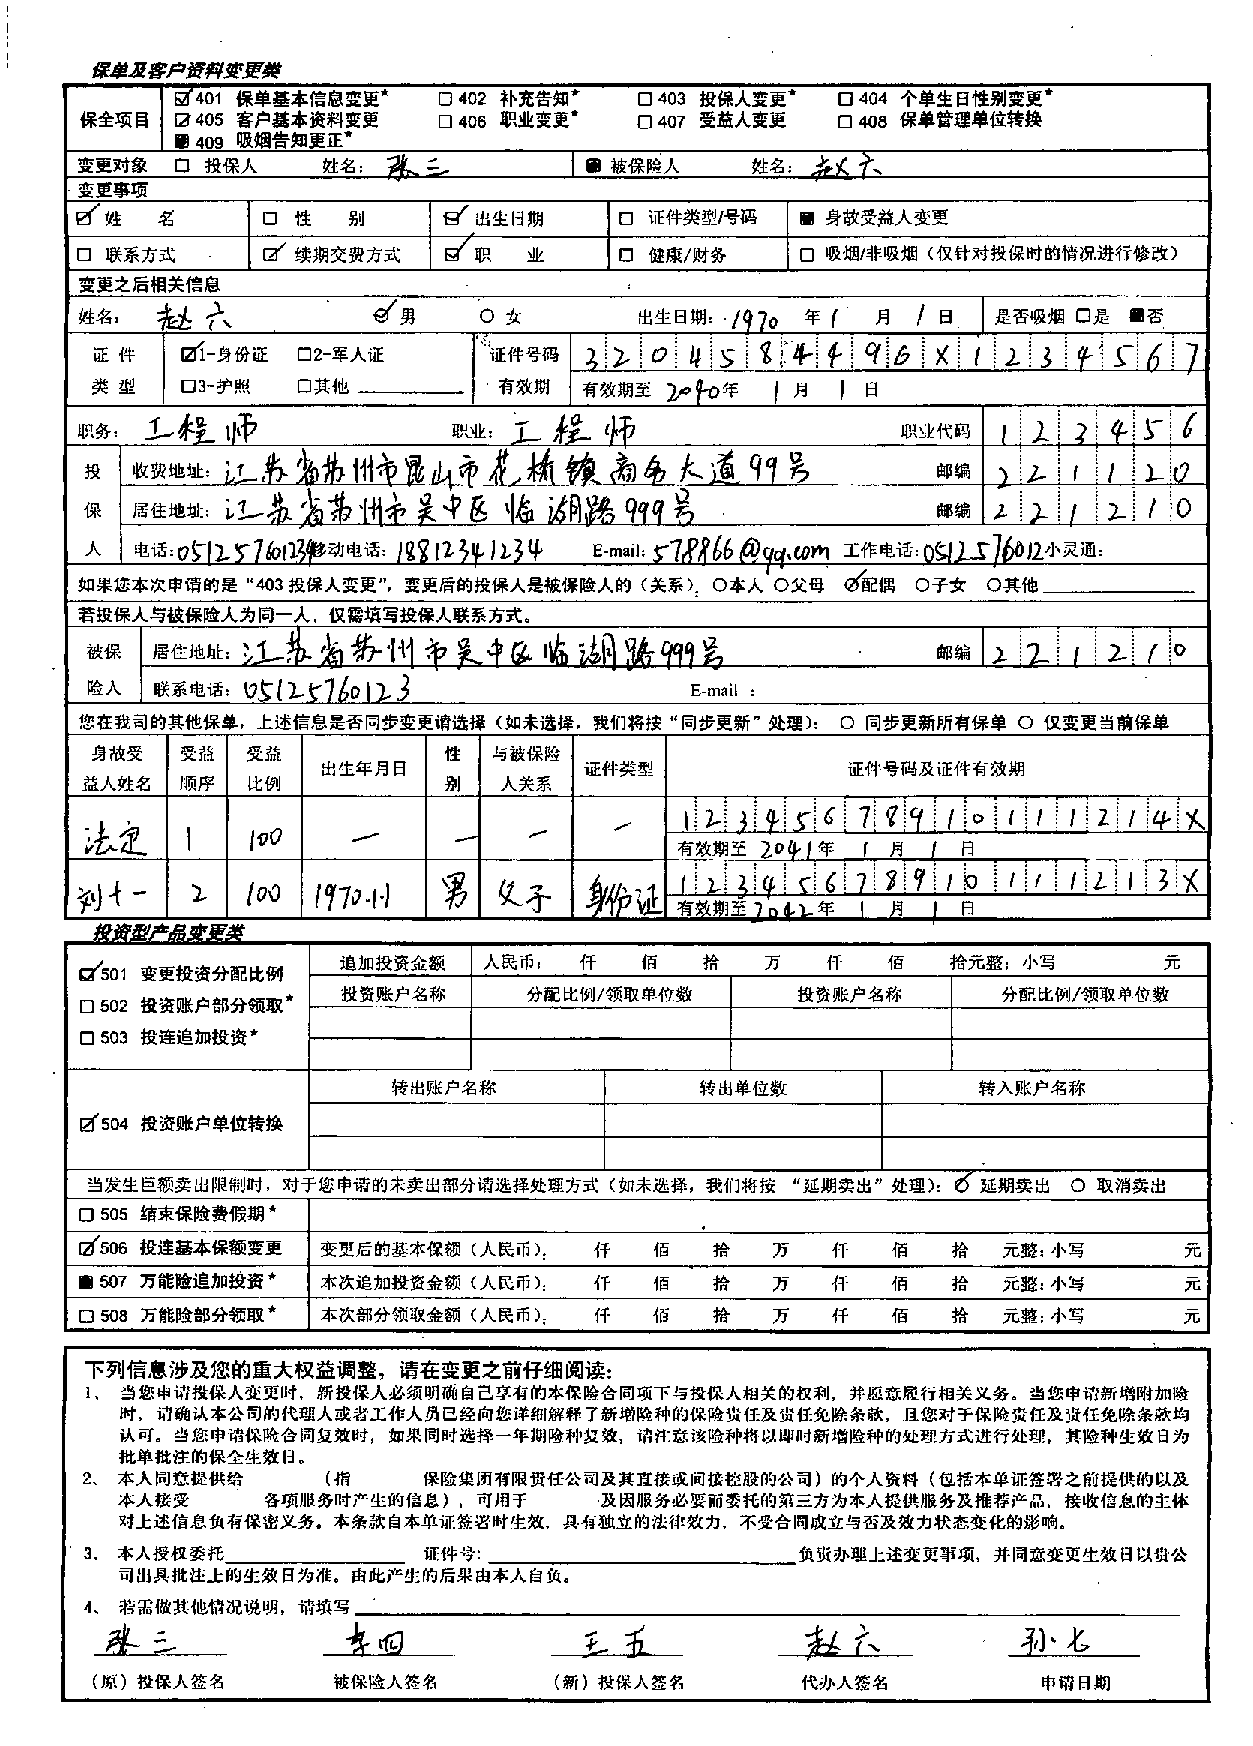 保单及客户资料变更类
保全项目 ☑401 保单基本信息变更* □402 补充告知* □403 投保人变更* □404 个单生日性别变更*
☑405 客户基本资料变更 □406 职业变更* □407 受益人变更 □408 保单管理单位转换
■409 吸烟告知更正*
变更对象 □ 投保人 姓名: 张三 ■ 被保险人 姓名: 赵六
变更事项
☑ 姓 名 □ 性 别 ☑ 出生日期 □ 证件类型/号码 ■ 身故受益人变更
□ 联系方式 ☑ 续期交费方式 ☑ 职 业 □ 健康/财务 □ 吸烟/非吸烟（仅针对投保时的情况进行修改）
变更之后相关信息
姓名: 赵六 ☑男 ○女 出生日期: 1970 年 1 月 1 日 是否吸烟 □是 ■否
证件 ☑1-身份证 □2-军人证 证件号码 3204584496X1234567
类型 □3-护照 □其他 有效期 有效期至 2040年 1 月 1 日
职务: 工程师 职业: 工程师 职业代码 123456
投 收费地址: 江苏省苏州市昆山市花桥镇商务大道99号 邮编 221120
保 居住地址: 江苏省苏州市吴中区临湖路999号 邮编 221210
人 电话: 051257601234 移动电话: 18812341234 E-mail: 578866@qq.com 工作电话: 0512576012 小灵通:
如果您本次申请的是“403投保人变更”，变更后的投保人是被保险人的（关系）: ○本人 ○父母 ☑配偶 ○子女 ○其他
若投保人与被保险人为同一人，仅需填写投保人联系方式。
被保 居住地址: 江苏省苏州市吴中区临湖路999号 邮编 221210
险人 联系电话: 05125760123 E-mail :
您在我司的其他保单，上述信息是否同步变更请选择（如未选择，我们将按“同步更新”处理）: ○ 同步更新所有保单 ○ 仅变更当前保单
身故受益人姓名 受益顺序 受益比例 出生年月日 性别 与被保险人关系 证件类型 证件号码及证件有效期
法定 1 100 — — — — 12345678910111214X
有效期至 2041年 1 月 1 日
刘十一 2 100 1970.1.1 男 父子 身份证 12345678910111213X
有效期至 2042年 1 月 1 日
投资型产品变更类
☑501 变更投资分配比例 追加投资金额 人民币: 仟 佰 拾 万 仟 佰 拾元整: 小写 元
□502 投资账户部分领取* 投资账户名称 分配比例/领取单位数 投资账户名称 分配比例/领取单位数
□503 投连追加投资*
转出账户名称 转出单位数 转入账户名称
☑504 投资账户单位转换
当发生巨额卖出限制时，对于您申请的未卖出部分请选择处理方式（如未选择，我们将按 “延期卖出”处理）: ☑ 延期卖出 ○ 取消卖出
□505 结束保险费假期*
☑506 投连基本保额变更 变更后的基本保额（人民币）: 仟 佰 拾 万 仟 佰 拾 元整: 小写 元
■507 万能险追加投资* 本次追加投资金额（人民币）: 仟 佰 拾 万 仟 佰 拾 元整: 小写 元
□508 万能险部分领取* 本次部分领取金额（人民币）: 仟 佰 拾 万 仟 佰 拾 元整: 小写 元
下列信息涉及您的重大权益调整，请在变更之前仔细阅读:
1、 当您申请投保人变更时，新投保人必须明确自己享有的本保险合同项下与投保人相关的权利，并愿意履行相关义务。当您申请新增附加险
时，请确认本公司的代理人或者工作人员已经向您详细解释了新增险种的保险责任及责任免除条款，且您对于保险责任及责任免除条款均
认可。当您申请保险合同复效时，如果同时选择一年期险种复效，请注意该险种将以即时新增险种的处理方式进行处理，其险种生效日为
批单批注的保全生效日。
2、 本人同意提供给 （指 保险集团有限责任公司及其直接或间接控股的公司）的个人资料（包括本单证签署之前提供的以及
本人接受 各项服务时产生的信息），可用于 及因服务必要而委托的第三方为本人提供服务及推荐产品，接收信息的主体
对上述信息负有保密义务。本条款自本单证签署时生效，具有独立的法律效力，不受合同成立与否及效力状态变化的影响。
3、 本人授权委托 证件号: 负责办理上述变更事项，并同意变更生效日以贵公
司出具批注上的生效日为准。由此产生的后果由本人自负。
4、 若需做其他情况说明，请填写
张三 李四 王五 赵六 孙七
（原）投保人签名 被保险人签名 （新）投保人签名 代办人签名 申请日期